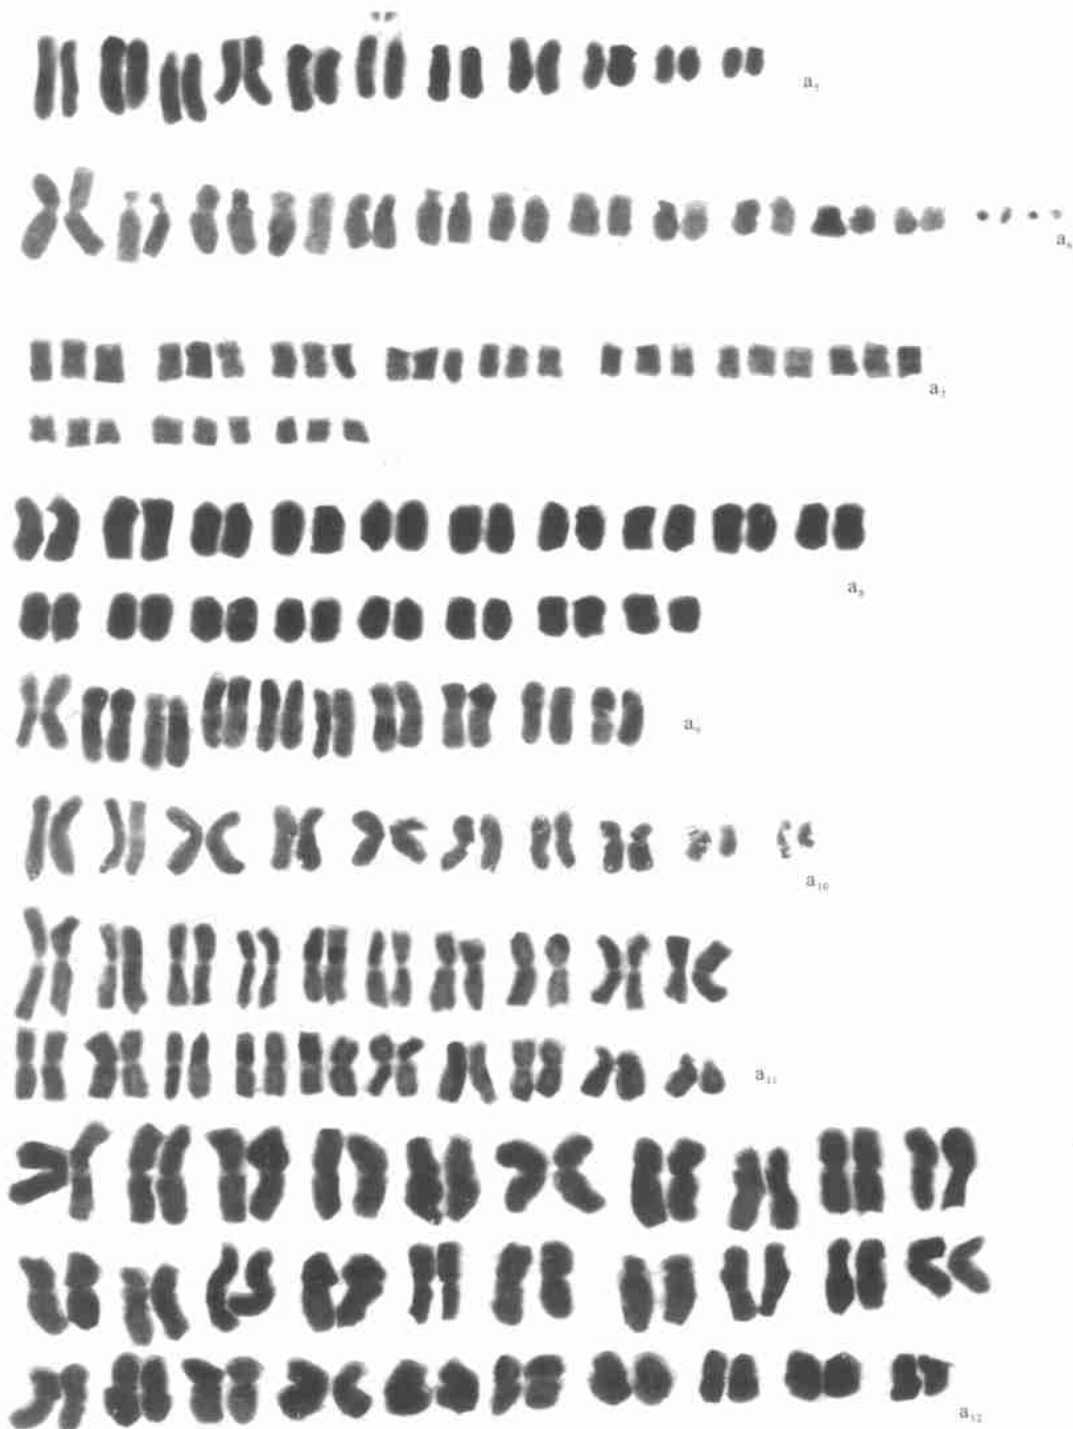 a₅
a₆
a₇
a₈
a₉
a₁₀
a₁₁
a₁₂